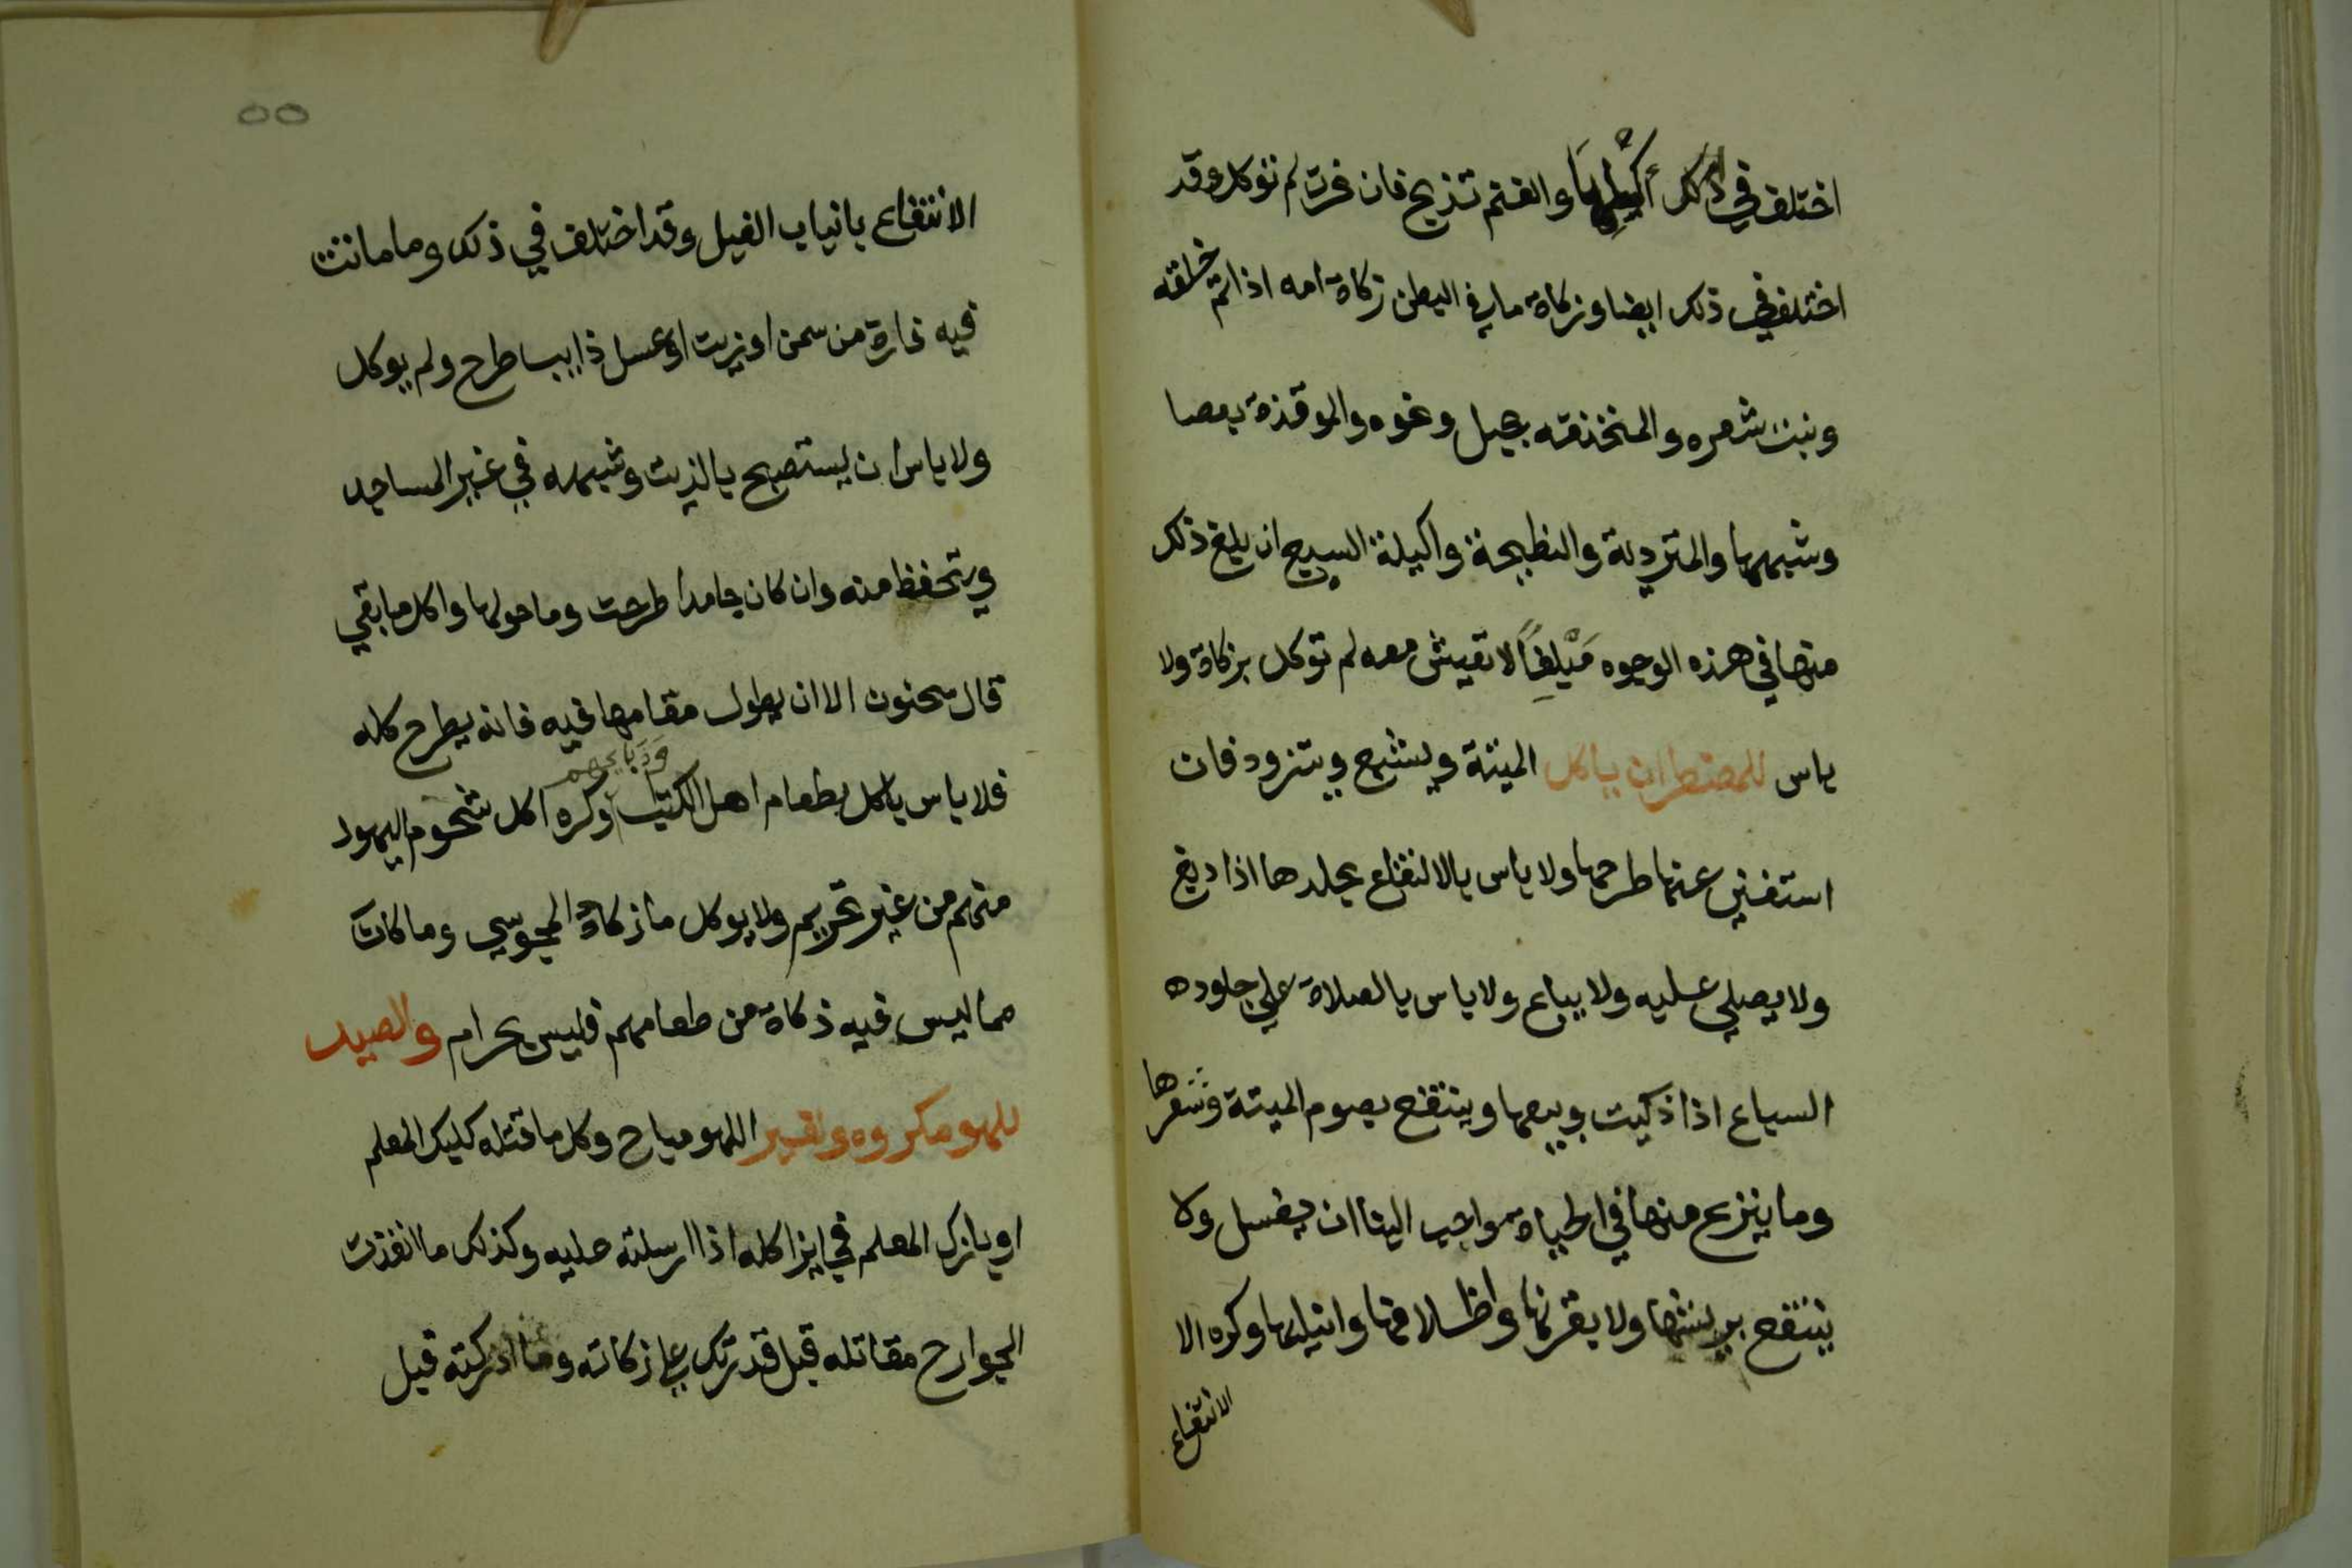 اختلف في ذلك أكلها والغنم تذبح فان نحرت لم توكل وقد
اختلف في ذلك ايضا وزكاة ما في البطن زكاة امه اذا تم خلقه
ونبت شعره والمنخنقه بحبل ونحوه والموقذة بعصا
وشبهها والمتردية والنطيحة واكيلة السبع ان بلغ ذلك
منها في هذه الوجوه مبلغاً لا تعيش معه لم توكل بزكاة ولا
باس للمضطر ان ياكل الميتة ويشبع ويتزود فان
استغني عنها طرحها ولا باس بالانتفاع بجلدها اذا دبغ
ولا يصلي عليه ولا يباع ولا باس بالصلاة علي جلوده
السباع اذا ذكيت وبيعها وينتفع بصوم الميتة وشعرها
وما ينزع منها في الحياة مواحب الينا ان يغسل ولا
ينتفع بريشها ولا بقرنها واظلافها وانيابها وكره الا
الانتفاع
٥٥
الانتفاع بانياب الفيل وقد اختلف في ذلك وما ماتت
فيه فارة من سمن او زيت او عسل ذايب طرح ولم يوكل
ولا باس ان يستصبح بالزيت وشبهه في غير المساجد
ويتحفظ منه وان كان جامدا طرحت وما حولها واكل ما بقي
قال سحنون الا ان يطول مقامها فيه فانه يطرح كله
فلا باس باكل بطعام اهل الكتاب وذبايحهم وكره اكل شحوم اليهود
منهم من غير تحريم ولا يوكل ما زكاة المجوسي وما كان
مما ليس فيه ذكاة من طعامهم فليس بحرام والصيد
للهو مكروه ولغير اللهو مباح وكل ما قتله كلبك المعلم
او بازك المعلم فجايز اكله اذا ارسلته عليه وكذلك ما انفذت
الجوارح مقاتله قبل قدرتك علي زكاته وما ادركته قبل